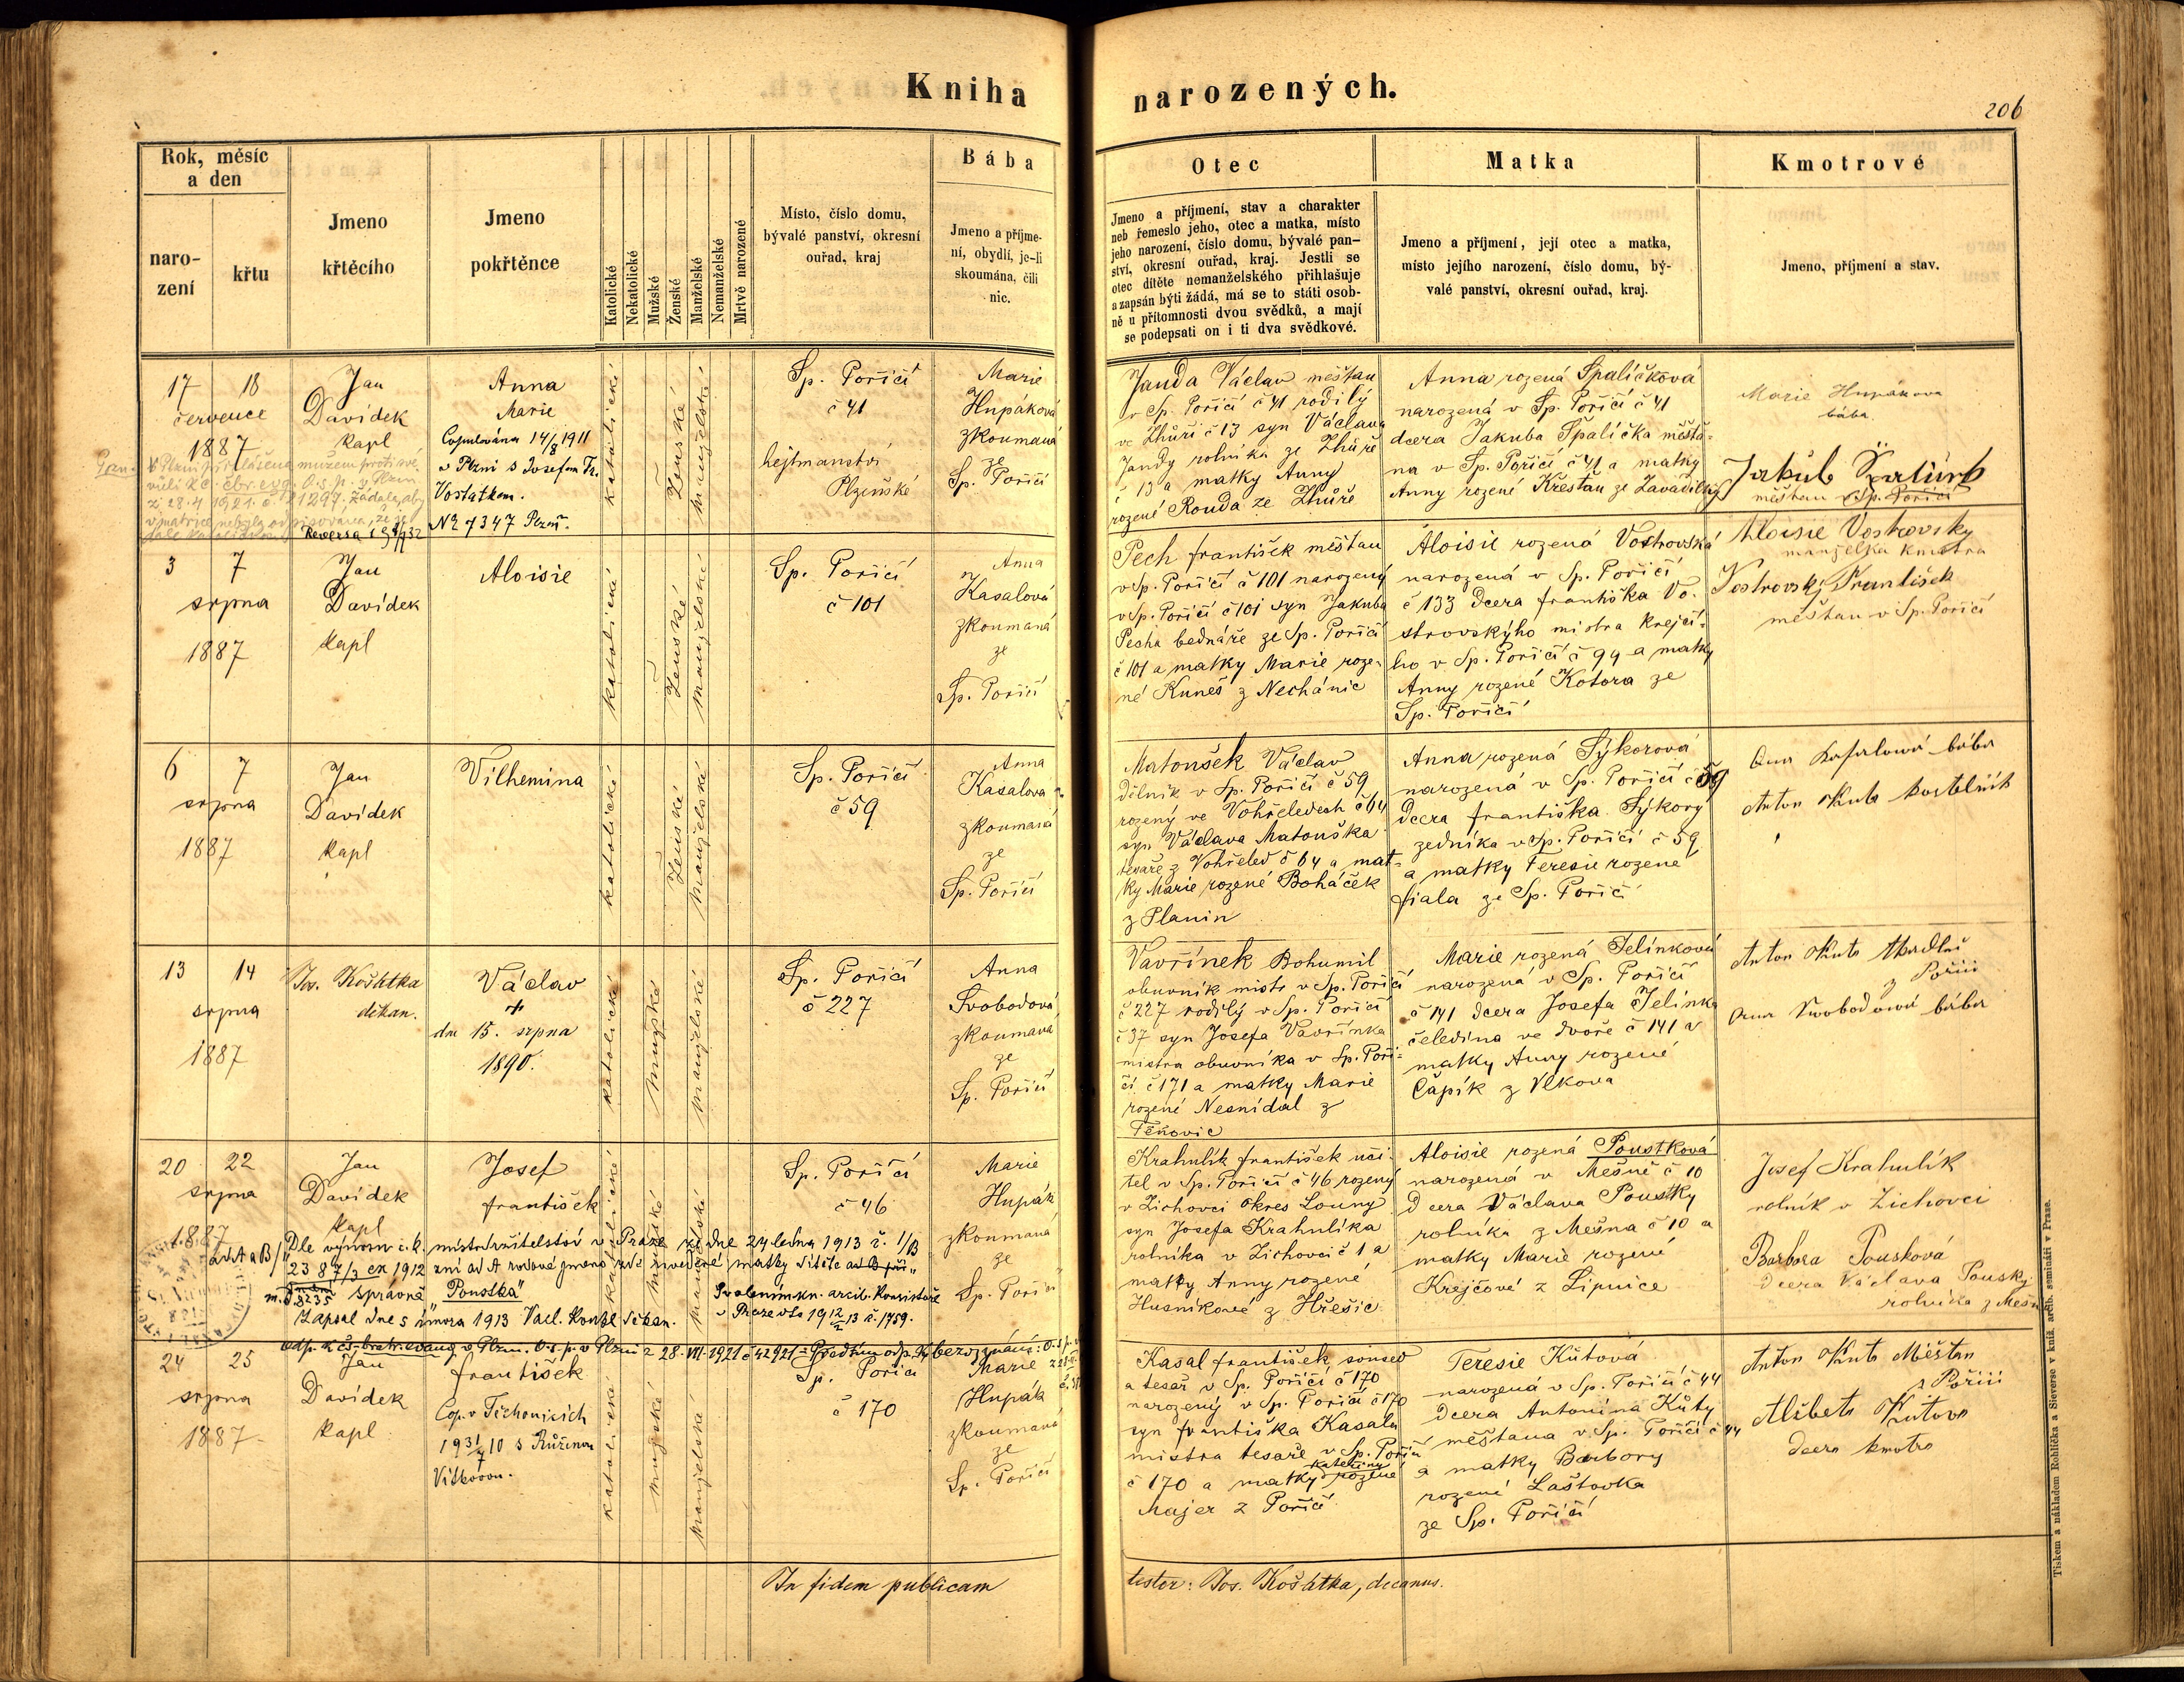 Kniha narozených.
206
Rok, měsíc
a den
naro-
zení
křtu
Jmeno
křtěcího
Jmeno
pokřtěnce
Katolické
Nekatolické
Mužské
Ženské
Manželské
Nemanželské
Mrtvě narozené
Místo, číslo domu,
bývalé panství, okresní
ouřad, kraj
Bába
Jmeno a příjme-
ní, obydlí, je-li
skoumána, čili
nic.
Otec
Jmeno a příjmení, stav a charakter
neb řemeslo jeho, otec a matka, místo
jeho narození, číslo domu, bývalé pan-
ství, okresní ouřad, kraj. Jestli se
otec dítěte nemanželského přihlašuje
a zapsán býti žádá, má se to státi osob-
ně u přítomnosti dvou svědků, a mají
se podepsati on i ti dva svědkové.
Matka
Jmeno a příjmení, její otec a matka,
místo jejího narození, číslo domu, bý-
valé panství, okresní ouřad, kraj.
Kmotrové
Jmeno, příjmení a stav.
17 18
července
1887
Jan
Davídek
kapl
Anna
Marie
Copulována 14/8 1911
v Plzni s Josefem Fr.
Vostatkem.
No 7347 Plzeň.
katolické
Ženské
manželské
Sp. Poříčí
č 41
hejtmanství
Plzeňské
Marie
Hnpáková
zkoumaná
ze
Sp. Poříčí
Janda Václav měšťan
v Sp. Poříčí č 41 rodilý
ve Lhůři č 13 syn Václava
Jandy rolníka ze Lhůře
č 13 a matky Anny
rozené Rouda ze Lhůře
Anna rozená Špalíčková
narozená v Sp. Poříčí č 41
dcera Jakuba Špalíčka měšťa-
na v Sp. Poříčí č 41 a matky
Anny rozené Křesťan ze Zavadilky
Marie Hnpákova
bába
Jakub
měšťan v Sp. Poříčí
3 7
srpna
1887
Jan
Davídek
kapl
Aloisie
katolické
Ženské
manželské
Sp. Poříčí
č 101
Anna
Kasalová
zkoumaná
ze
Sp. Poříčí
Pech františek měšťan
v Sp. Poříčí č 101 narozený
v Sp. Poříčí č 101 syn Jakuba
Pesha bednáře ze Sp. Poříčí
č 101 a matky Marie roze-
né Kuneš z Nechánic
Aloisie rozená Vostrovská
narozená v Sp. Poříčí
č 133 dcera františka Vo-
strovskýho mistra krejčí-
ho v Sp. Poříčí č 99 a matky
Anny rozené Kotora ze
Sp. Poříčí
Aloisie Vostrovsky
manželka kmotra
Vostrovský František
měšťan v Sp. Poříčí
6 7
srpna
1887
Jan
Davídek
kapl
Vilhemina
katolické
Ženské
manželské
Sp. Poříčí
č 59
Anna
Kasalova
zkoumaná
ze
Sp. Poříčí
Matoušek Václav
dělník v Sp. Poříčí č 59
rozený ve Vohřeledech č 64
syn Václava Matouška
tesaře z Vohřeled č 64 a mat-
ky Marie rozené Boháček
z Planin
Anna rozená Sýkorová
narozená v Sp. Poříčí č 59
dcera františka Sýkory
zedníka v Sp. Poříčí č 59
a matky Teresie rozené
fiala ze Sp. Poříčí
Ana Kasalowá bába
Anton Kuta kostelník
13 14
srpna
1887
Jos. Košátka
děkan.
Václav
†
dne 15. srpna
1890.
katolické
mužské
manželské
Sp. Poříčí
č 227
Anna
Svobodová
zkoumaná
ze
Sp. Poříčí
Vavřínek Bohumil
obuvník mistr v Sp. Poříčí
č 227 rodilý v Sp. Poříčí
č 37 syn Josefa Vavřínka
mistra obuvníka v Sp. Poří-
čí č 171 a matky Marie
rozené Nesnídal z
Těkovic
Marie rozená Jelínková
narozená v Sp. Poříčí
č 141 dcera Josefa Jelínka
čeledína ve dvoře č 141 a
matky Anny rozené
Čapík z Vlkova
Anton Kuta
z Poříčí
Anna Swobodowá bába
20 22
srpna
1887
Jan
Davídek
kapl
Josef
františek
katolické
mužské
manželské
Sp. Poříčí
č 46
Marie
Hupák
zkoumaná
ze
Sp. Poříčí
ad A a B/
Dle výnosu c. k. místodržitelství v Praze ze dne 24 ledna 1913 č. 1/B
2387/3 ex 1912 zní ad A rodové jmeno zde uvedené matky dítěte
správně "Poustka"
Zapsal dne 5 února 1913 Vacl. Konzl děkan.
Svolením kn. arcib. Konsistoře
v Praze dto 19 12/2 13 č. 1759.
Krahulík františek uči-
tel v Sp. Poříčí č 46 rozený
v Zichovci okres Louny
syn Josefa Krahulíka
rolníka v Zichovci č 1 a
matky Anny rozené
Husníkové z Hřešic
Aloisie rozená Poustková
narozená v Mešně č 10
dcera Václava Poustky
rolníka z Mešna č 10 a
matky Marie rozené
Krejčové z Lipnice
Josef Krahulík
rolník v Zichovci
Barbora Pousková
dcera Václava Pousky
rolníka z Mešn
24 25
srpna
1887
Jan
Davídek
kapl
františek
Cop. v Tichonicích
19 31/7 10 s Růženou
Vítkovou.
katolické
mužské
manželské
Sp. Poříčí
č 170
Marie
Hupák
zkoumaná
ze
Sp. Poříčí
Kasal františek soused
a tesař v Sp. Poříčí č 170
narozený v Sp. Poříčí č 170
syn františka Kasala
mistra tesaře v Sp. Poříčí
č 170 a matky Kateřiny rozené
Majer z Poříčí
Teresie Kůtová
narozená v Sp. Poříčí č 44
dcera Antonína Kůty
měšťana v Sp. Poříčí č 44
a matky Barbory
rozené Laštovka
ze Sp. Poříčí
Anton Kuta Měšťan
z Poříčí
Alžbeta Kutova
dcera kmotra
In fidem publicam
testor: Jos. Košátka, decanus.
Tiskem a nákladem Rohlíčka a Sieverse v kníž. arcib. semináři v Praze.